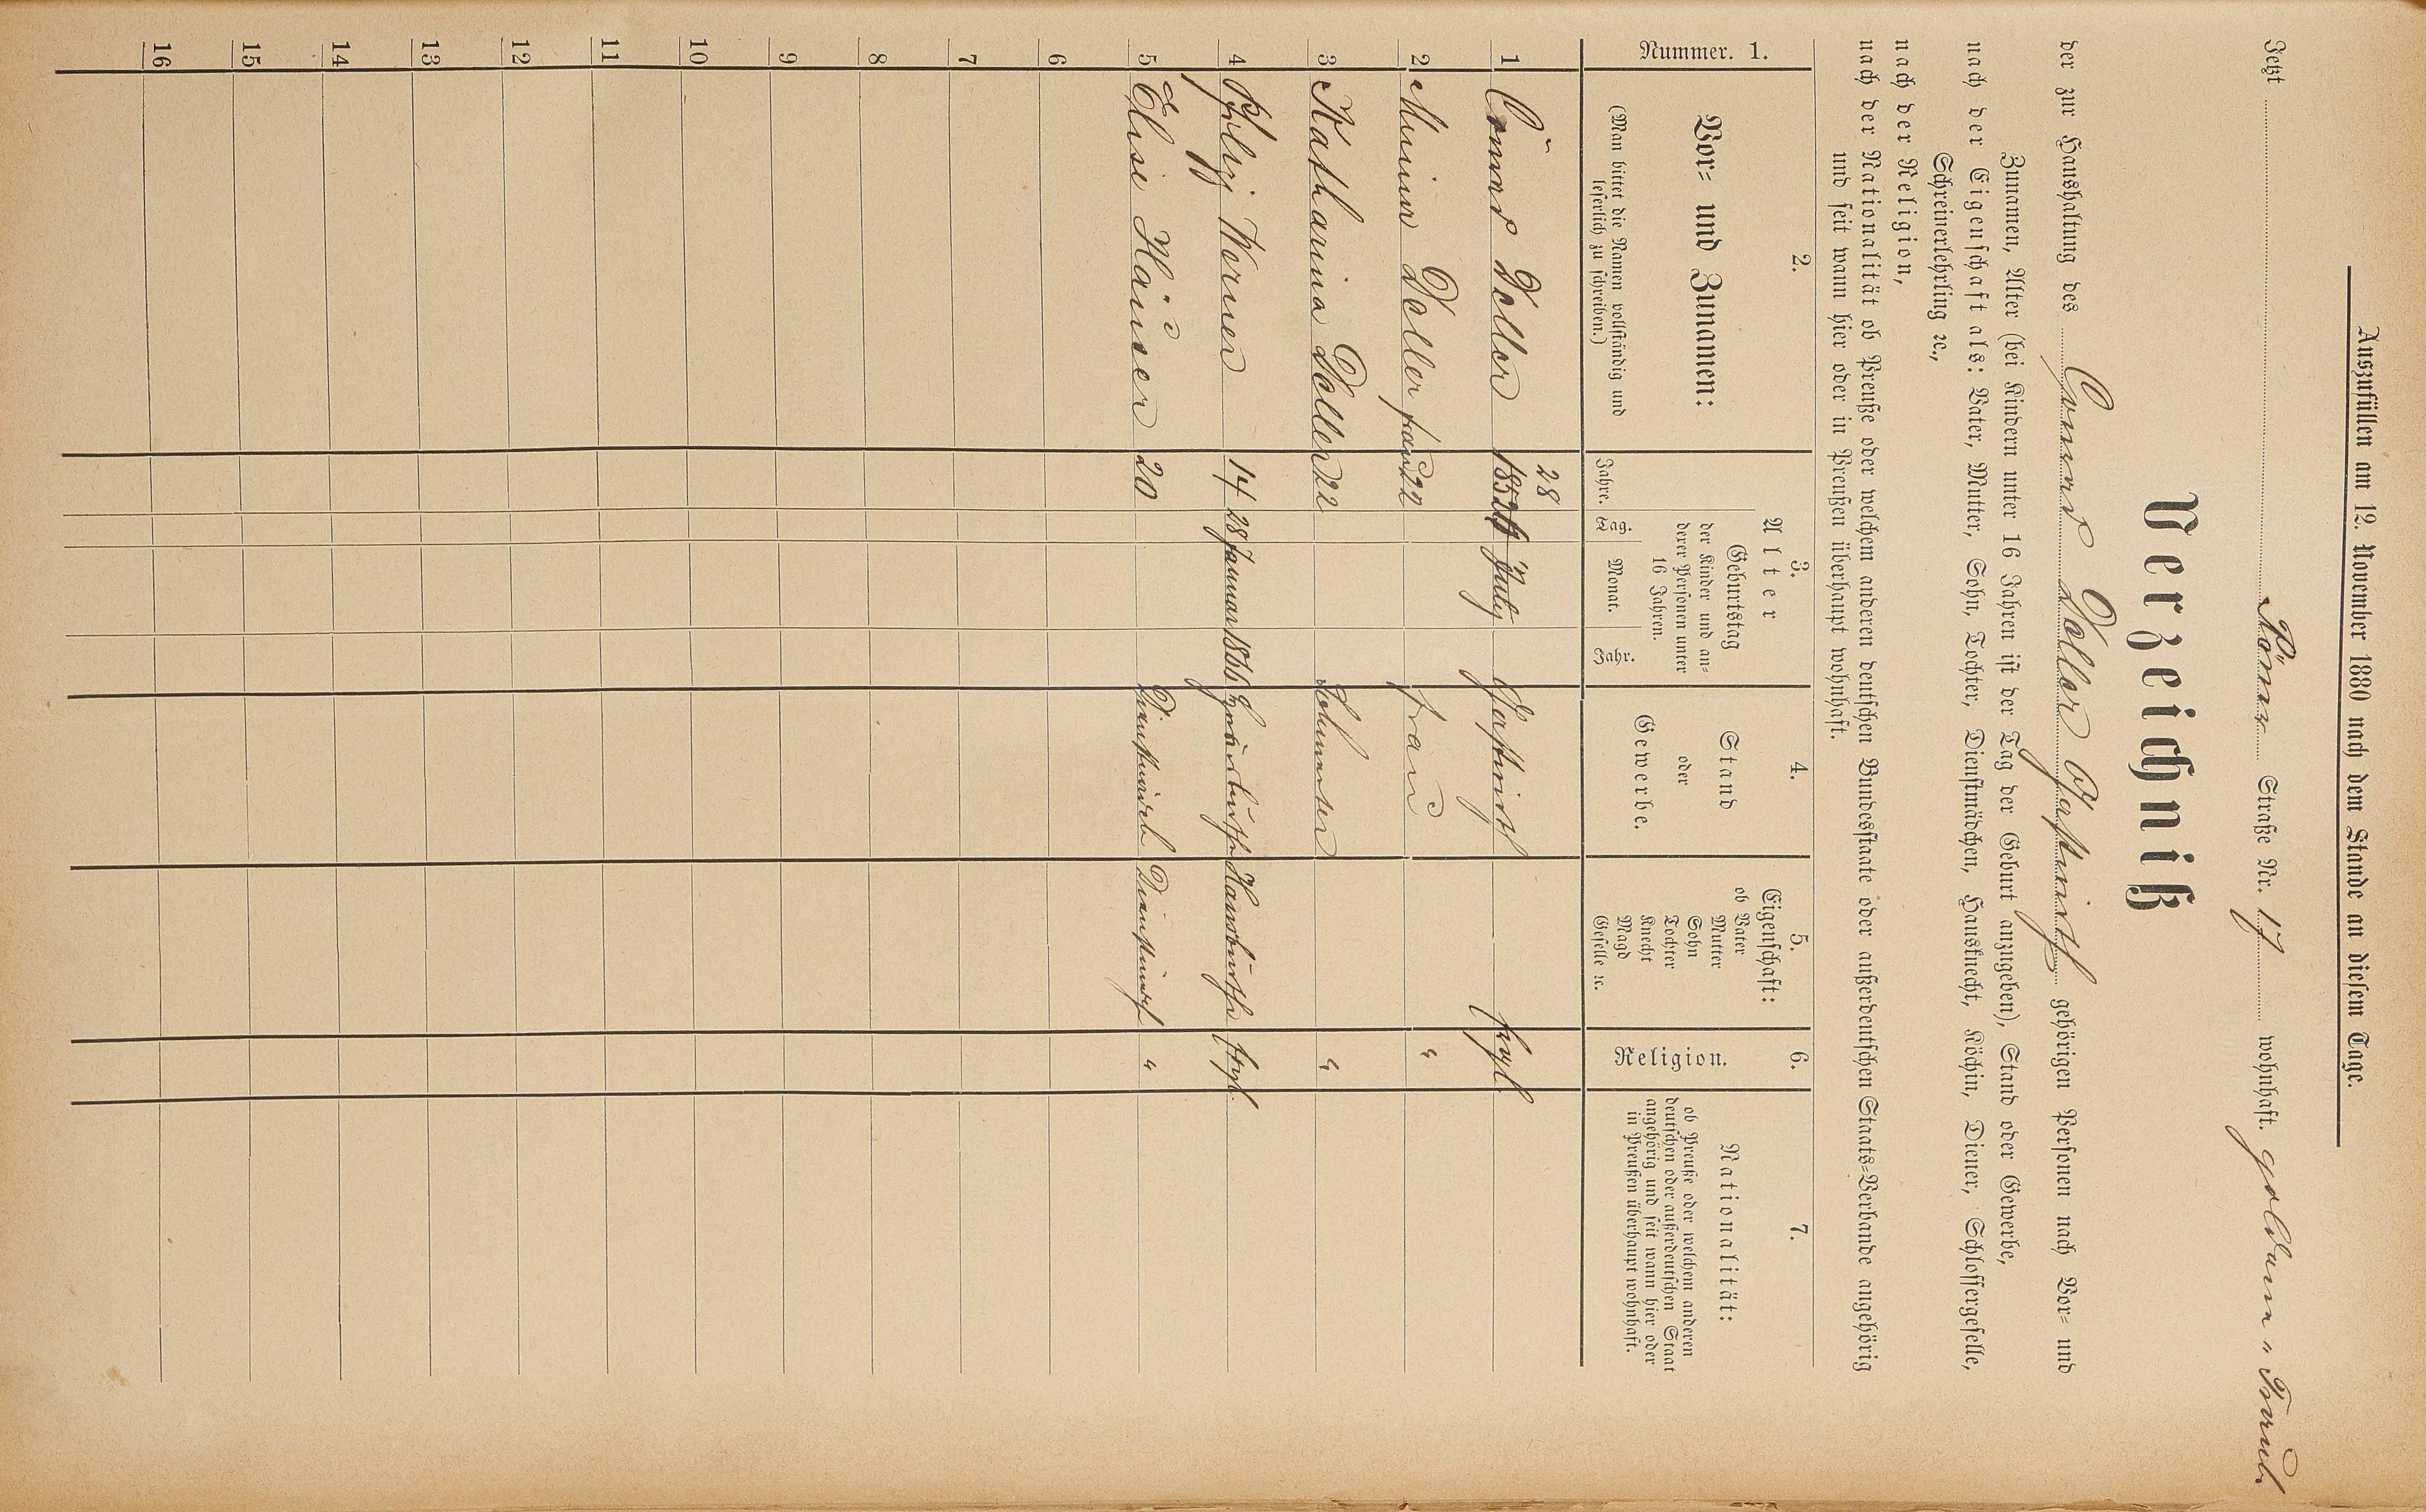 Auszufüllen am 12. November 1880 nach dem Stande an diesem Tage.
Jetzt Römer Straße Nr. 17 wohnhaft. goldene Traube
Verzeichniß
der zur Haushaltung des Conrad Deller Gastwirth gehörigen Personen nach Vor- und
Zunamen, Alter (bei Kindern unter 16 Jahren ist der Tag der Geburt anzugeben), Stand oder Gewerbe,
nach der Eigenschaft als: Vater, Mutter, Sohn, Tochter, Dienstmädchen, Hausknecht, Köchin, Diener, Schlossergeselle,
Schreinerlehrling ꝛc.,
nach der Religion,
nach der Nationalität ob Preuße oder welchem anderen deutschen Bundesstaate oder außerdeutschen Staats-Verbande angehörig
und seit wann hier oder in Preußen überhaupt wohnhaft.
Nummer. 1.
2.
Vor- und Zunamen:
(Man bittet die Namen vollständig und
leserlich zu schreiben.)
3.
Alter
Geburtstag
der Kinder und an-
derer Personen unter
16 Jahren.
Jahre. Tag. Monat. Jahr.
4.
Stand
oder
Gewerbe.
5.
Eigenschaft:
ob Vater
Mutter
Sohn
Tochter
Knecht
Magd
Geselle ꝛc.
6.
Religion.
7.
Nationalität:
ob Preuße oder welchem anderen
deutschen oder außerdeutschen Staat
angehörig und seit wann hier oder
in Preußen überhaupt wohnhaft.
28
1 Conrad Deller 1852 July Gastwirth
2 Deller Frau 22 Frau "
3 Katharina Deller 22 "
4 Philip Werner 14 28 Januar 1866 Hausbursche
5 Elise Häuser 20 Dienstmädch "
6
7
8
9
10
11
12
13
14
15
16